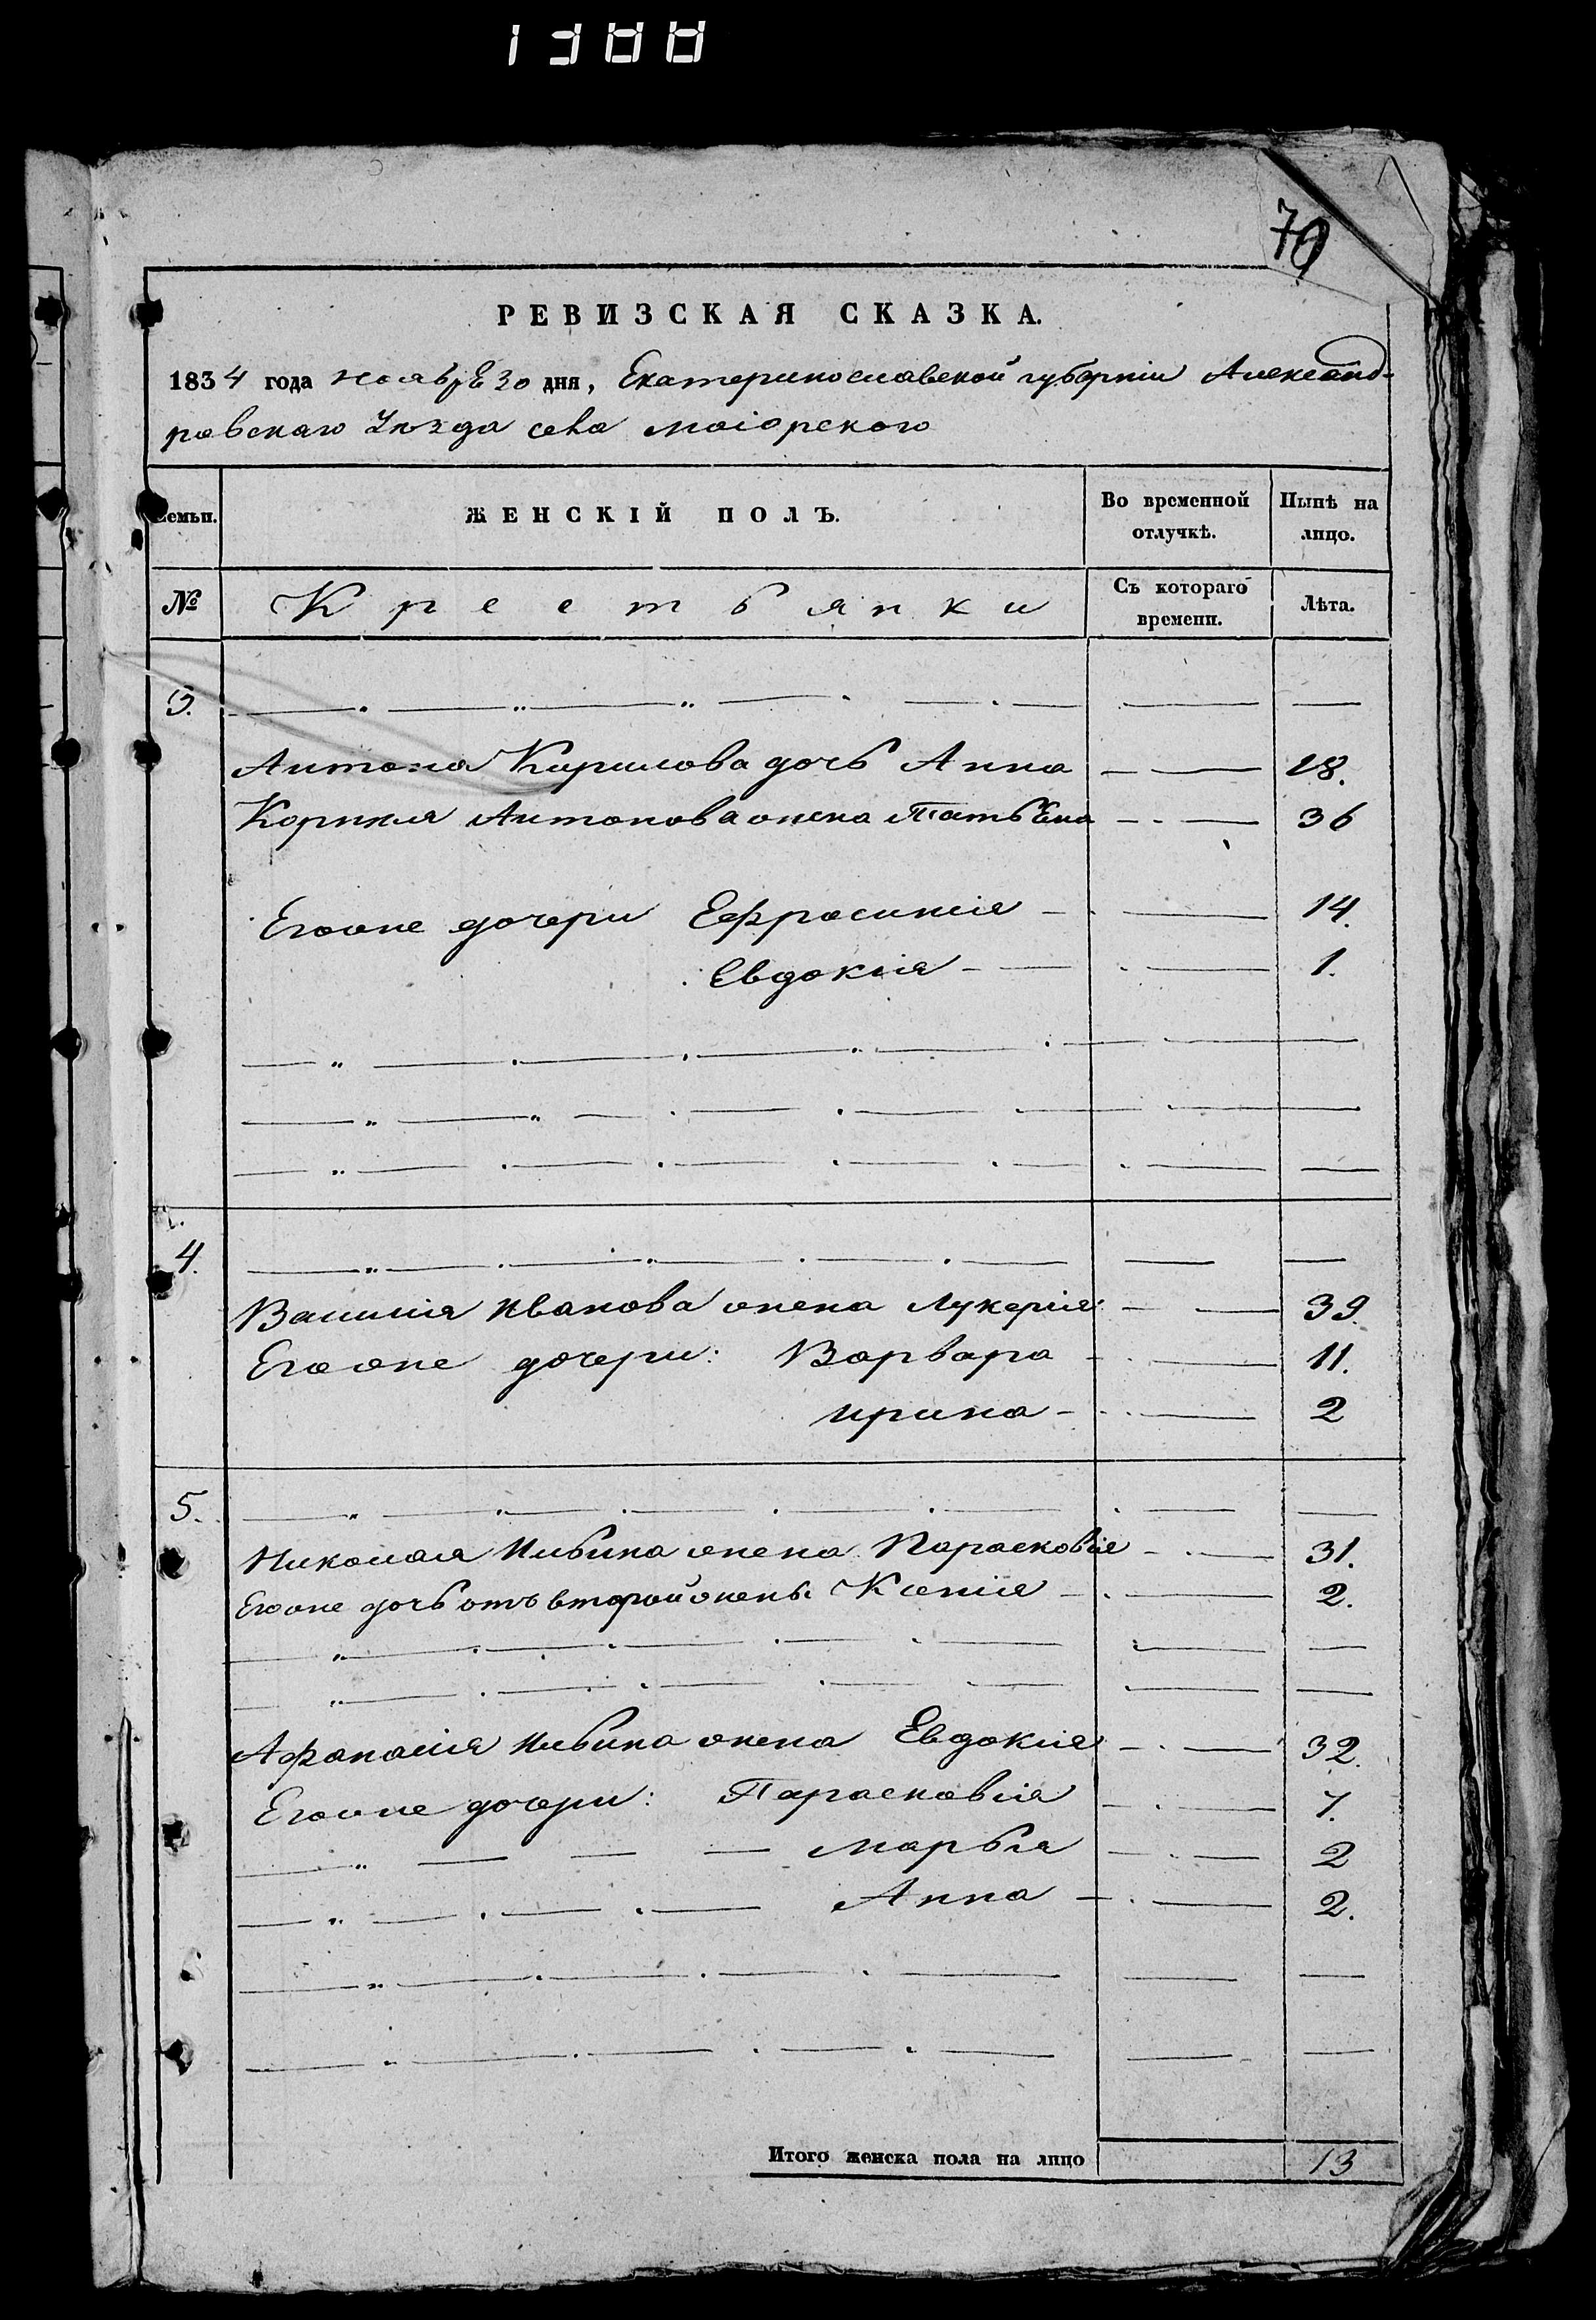 1388
70
РЕВИЗСКАЯ СКАЗКА.
1834 года ноября 30 дня, Екатеринославской губерніи Александ-
ровскаго Уѣзда села маіорского
Семьи. ЖЕНСКІЙ ПОЛЪ. Во временной отлучкѣ. Нынѣ на лицо.
№ Крестьянки Съ котораго времени. Лѣта.
3.
Антона Кирилова дочь Анна 18.
Корнилія Антонова жена Татьяна 36
Егожие дочери Ефросинія 14.
Евдокія 1.
4.
Василія Иванова жена Лукерія 39.
Егожие дочери: Варвара 11.
Ирина 2
5.
Николая Ильина жена Парасковія 31.
Егоже дочь отъ второй жены Ксенія 2.
Афанасія Ильина жена Евдокія 32.
Егожие дочери: Парасковія 7.
Марья 2
Анна 2.
Итого женска пола на лицо 13